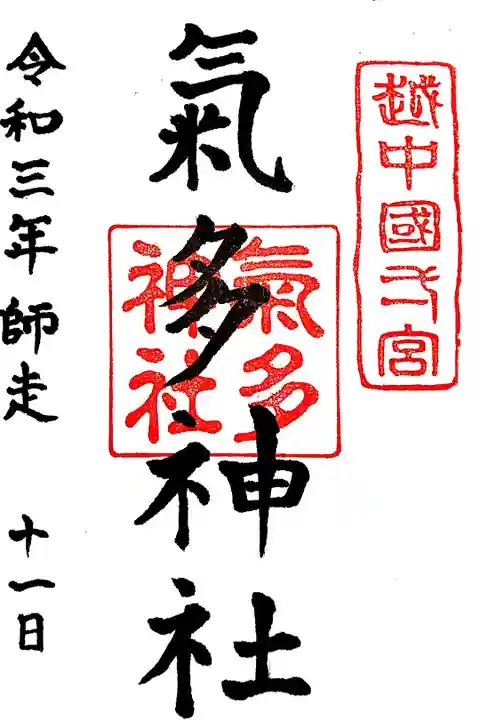 越中國一宮
氣多神社
氣多
神社
令和三年師走 十一日